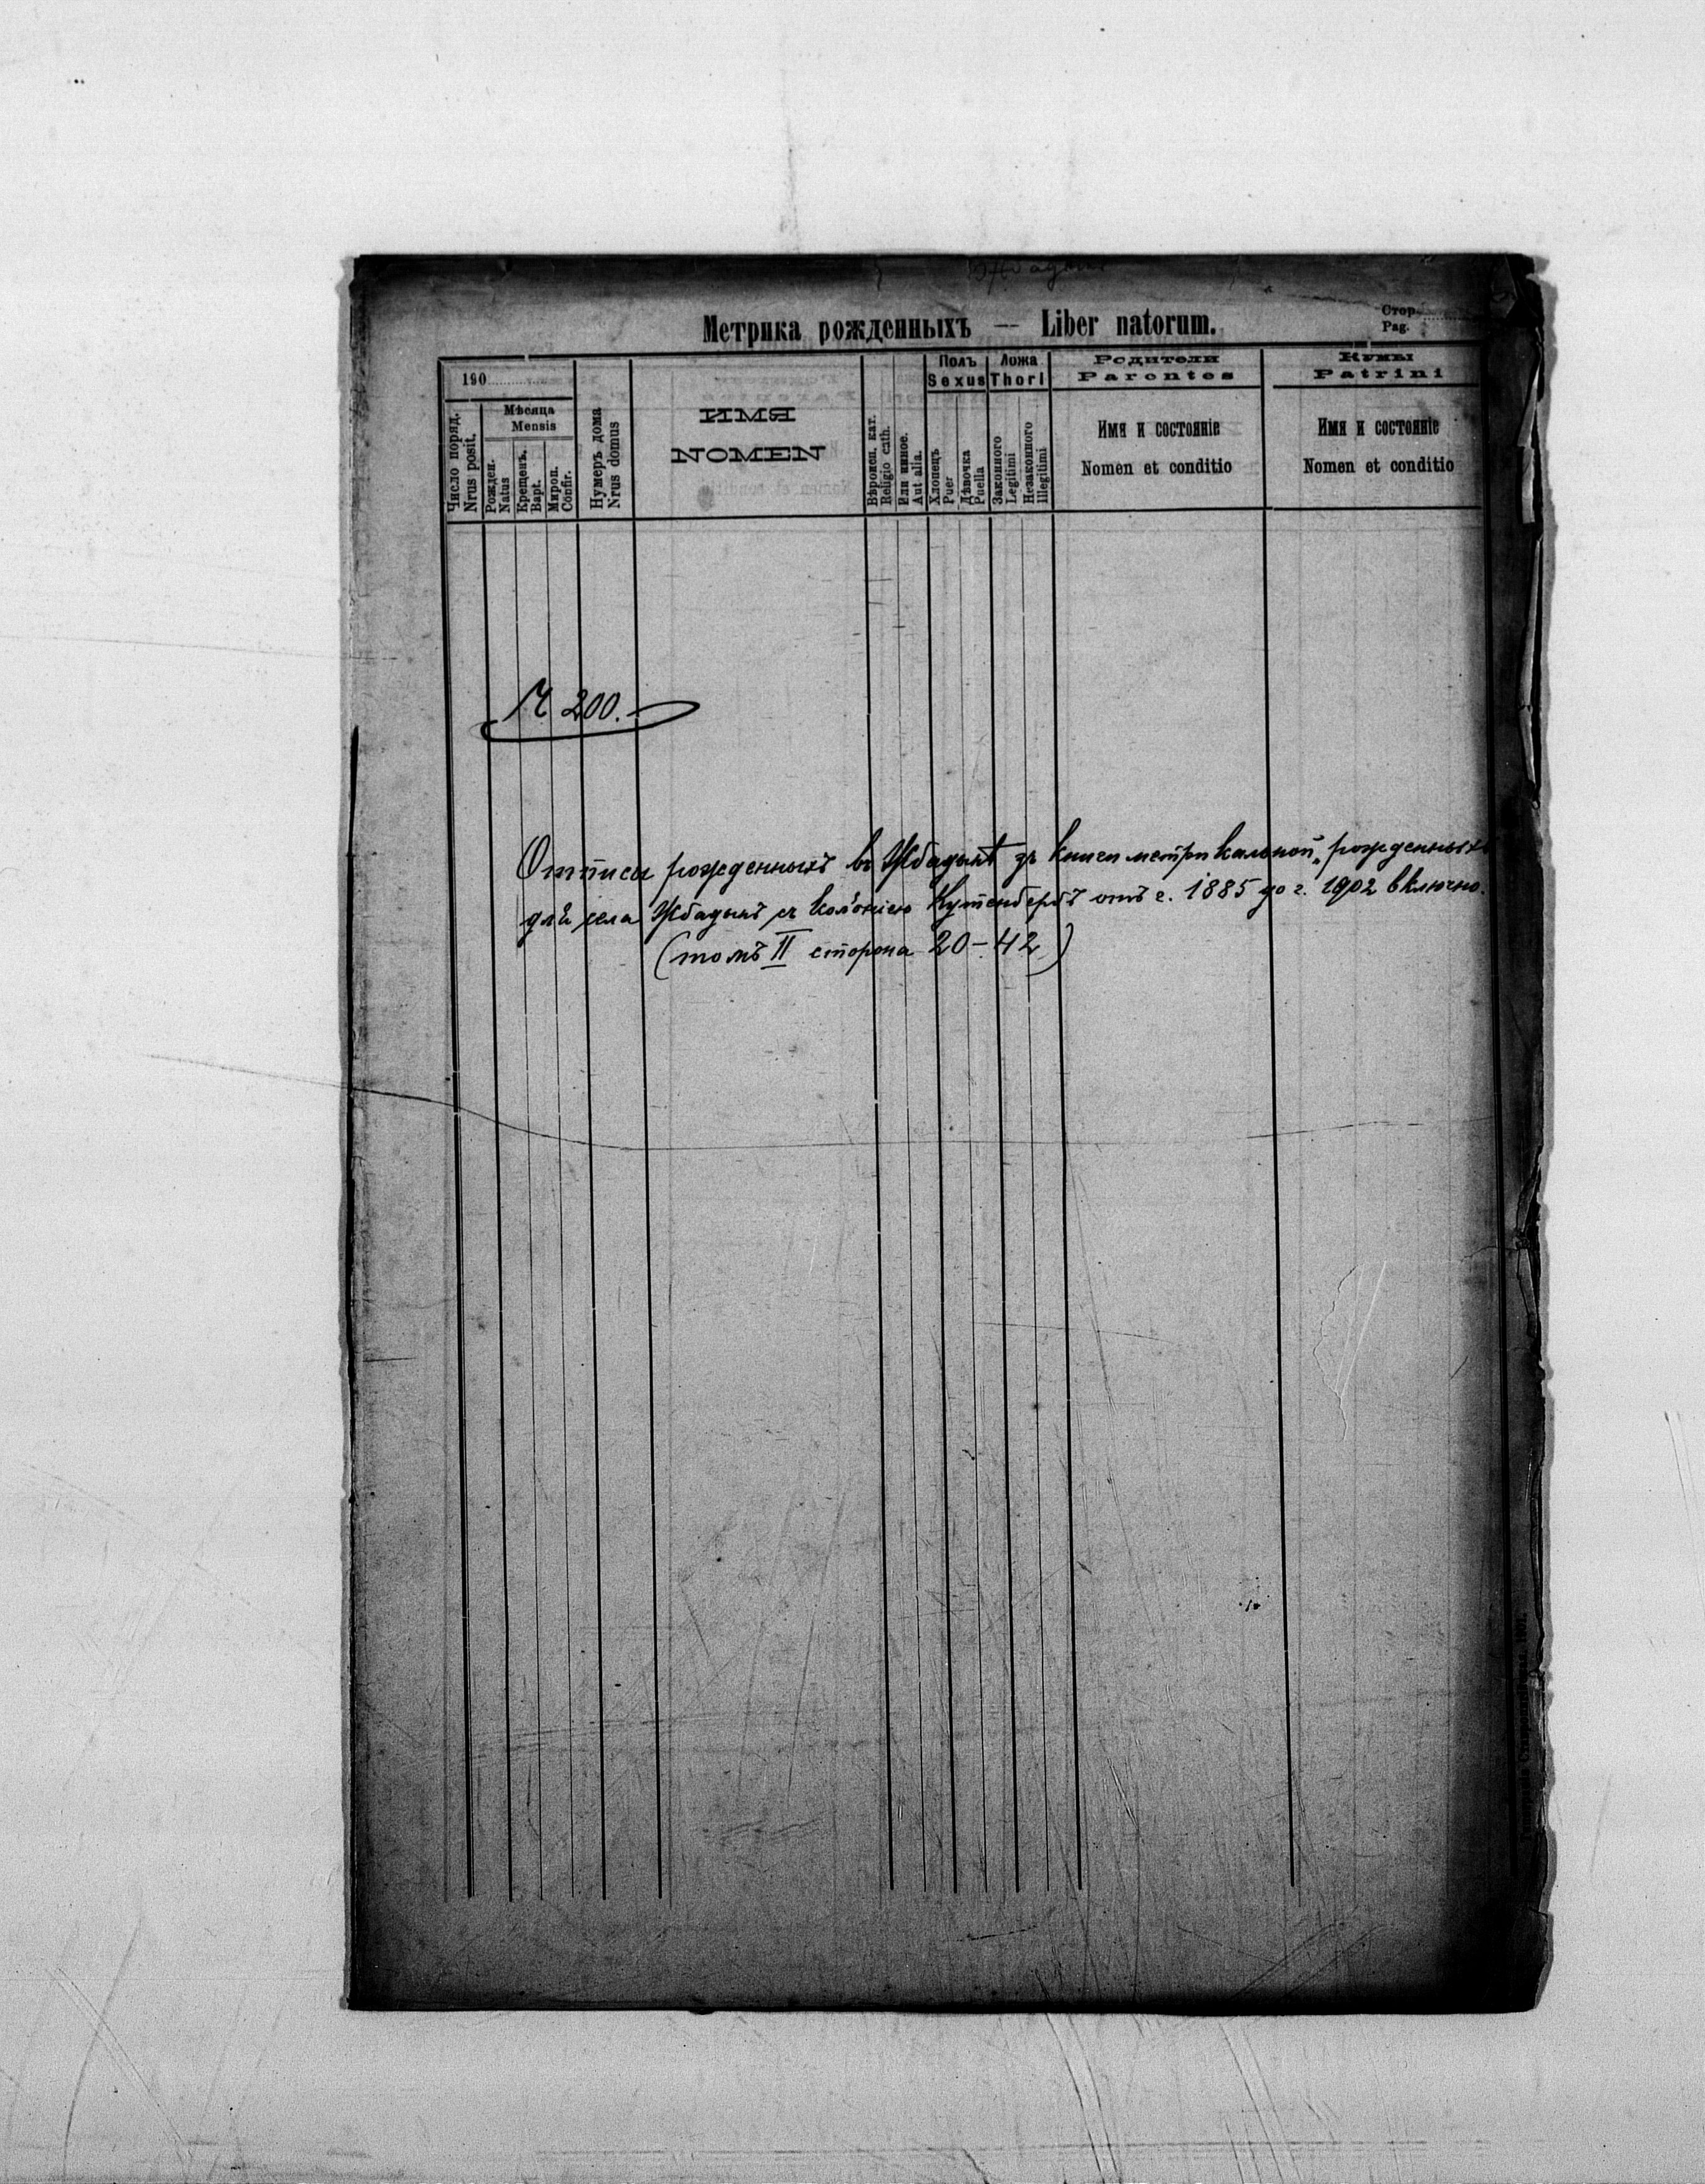 Метрика рожденныхъ — Liber natorum.
Стор.
Pag.
190
Число поряд.
Nrus posit.
Мѣсяца
Mensis
Рожден.
Natus
Крещенъ.
Bapt.
Мироп.
Confir.
Нумеръ дома
Nrus domus
ИМЯ
NOMEN
Вѣроисп. кат.
Religio cath.
Или инное.
Aut alia.
Полъ
Sexus
Хлопецъ
Puer
Дѣвочка
Puella
Ложа
Thori
Законного
Legitimi
Незаконного
Illegitimi
Родители
Parentes
Имя и состоянiе
Nomen et conditio
Кумы
Patrini
Имя и состоянiе
Nomen et conditio
Ч 200.
Отписы рожденныхъ въ Жбадынѣ зъ книги метрикальной „рожденныхъ
для села Жбадынѣ съ колонією Кутенбергъ отъ г. 1885 до г. 1902 включно.
(томъ II сторона 20–42)